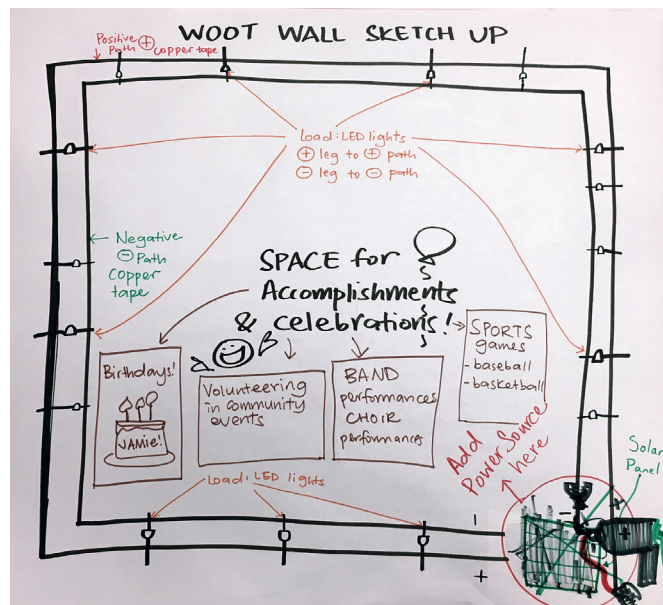 WOOT WALL SKETCH UP
Positive
Path ⊕ copper tape
Load: LED lights
⊕ leg to ⊕ path
⊖ leg to ⊖ path
Negative
⊖ Path
copper
tape
SPACE for
Accomplishments
& celebrations!
Birthdays!
JAMIE!
Volunteering
in community
events
BAND
performances
CHOIR
performances
SPORTS
games
- baseball
- basketball
Add
Power Source
here
Solar
Panel
Load: LED lights
-
+
+